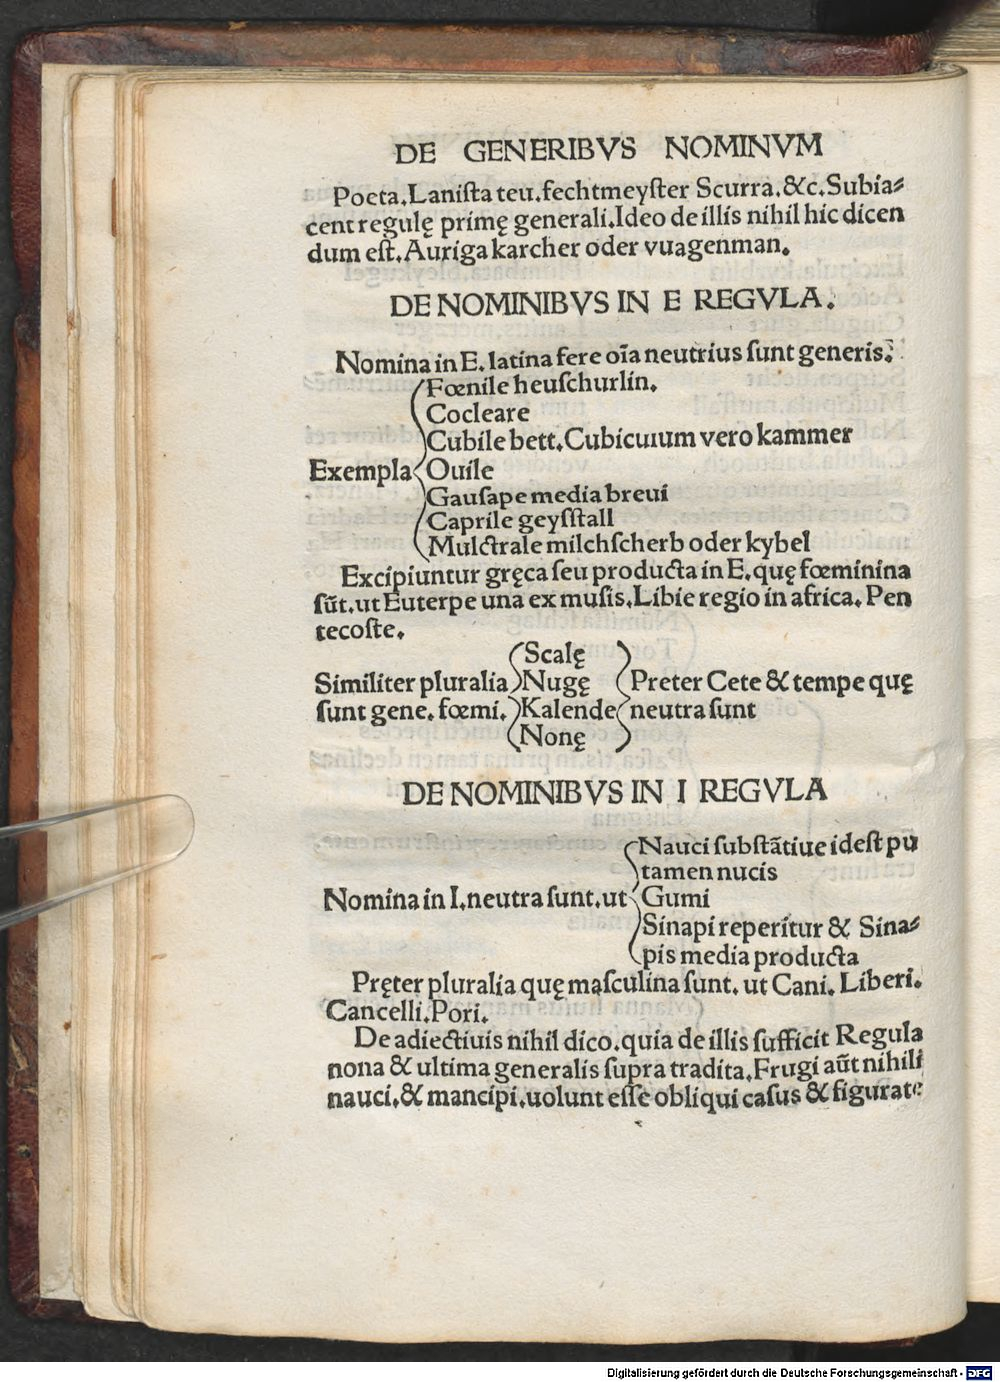 DE GENERIBVS NOMINVM
Poeta.Laniſta teu.fechtmeyſter Scurra.&c.Subia⸗
cent regulę primę generali.Ideo de illis nihil hic dicen
dum eſt.Auriga karcher oder vuagenman.
DE NOMINIBVS IN E REGVLA.
Nomina in E.latina fere oīa neutrius ſunt generis.
Fœnile heuſchurlin.
Cocleare
Cubile bett.Cubiculum vero kammer
Exempla Ouile
Gauſape media breui
Caprile geyſſtall
Mulctrale milchſcherb oder kybel
Excipiuntur gręca ſeu producta in E.quę fœminina
ſūt.ut Euterpe una ex muſis.Libie regio in africa.Pen
tecoſte.
Scalę
Similiter pluralia Nugę Preter Cete & tempe quę
ſunt gene.fœmi. Kalende neutra ſunt
Nonę
DE NOMINIBVS IN I REGVLA
Nauci ſubſtātiue id eſt pu
tamen nucis
Nomina in I.neutra ſunt.ut Gumi
Sinapi reperitur & Sina⸗
pis media producta
Pręter pluralia quę maſculina ſunt.ut Cani.Liberi.
Cancelli.Pori.
De adiectiuis nihil dico.quia de illis ſufficit Regula
nona & ultima generalis ſupra tradita.Frugi aūt nihili
nauci.& mancipi.uolunt eſſe obliqui caſus & figurate
Digitalisierung gefördert durch die Deutsche Forschungsgemeinschaft - DFG